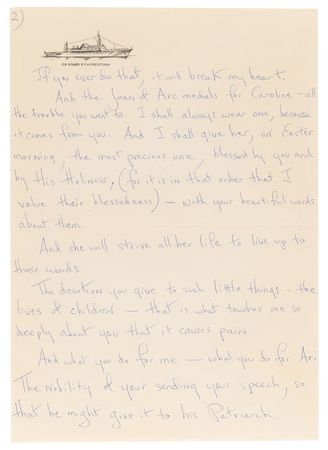 2)
ON BOARD S.Y. «CHRISTINA»
If you ever do that, it will break my heart.
And the Joan of Arc medals for Caroline - all
the trouble you went to. I shall always wear one, because
it comes from you. And I shall give her, on Easter
morning, the most precious one, blessed by you and
by His Holiness, (for it is in that order that I
value their blessedness) - with your beautiful words
about them.
And she will strive all her life to live up to
those words
The devotion you give to such little things - the
lives of children - that is what touches me so
deeply about you that it causes pain.
And what you do for me - what you do for Ari.
The nobility of your sending your speech, so
that he might give it to his Patriarch.